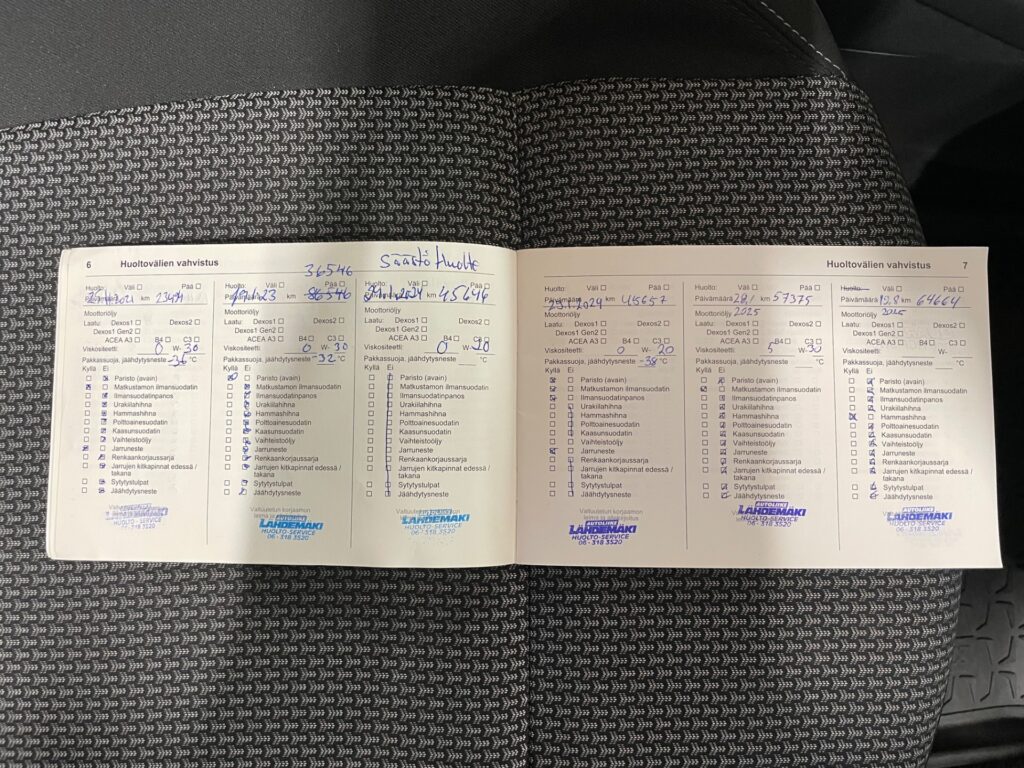 6 Huoltovälien vahvistus
36546 Säästö Huolto
Huolto: Väli Pää
Päivämäärä km 23471
Moottoriöljy
Laatu: Dexos1 Dexos2
Dexos1 Gen2
ACEA A3 B4 C3
Viskositeetti 0 W- 30
Pakkassuoja, jäähdytysneste -36 °C
Kyllä Ei
Paristo (avain)
Matkustamon ilmansuodatin
Ilmansuodatinpanos
Urakiilahihna
Hammashihna
Polttoainesuodatin
Kaasunsuodatin
Vaihteistoöljy
Jarruneste
Renkaankorjaussarja
Jarrujen kitkapinnat edessä /
takana
Sytytystulpat
Jäähdytysneste
HUOLTO-SERVICE
06 - 318 3520
Huolto: Väli Pää
Päivämäärä km 36546
Moottoriöljy
Laatu: Dexos1 Dexos2
Dexos1 Gen2
ACEA A3 B4 C3
Viskositeetti 0 W- 30
Pakkassuoja, jäähdytysneste -32 °C
Kyllä Ei
Paristo (avain)
Matkustamon ilmansuodatin
Ilmansuodatinpanos
Urakiilahihna
Hammashihna
Polttoainesuodatin
Kaasunsuodatin
Vaihteistoöljy
Jarruneste
Renkaankorjaussarja
Jarrujen kitkapinnat edessä /
takana
Sytytystulpat
Jäähdytysneste
Valtuutetun korjaamon
leima ja vahvistus
AUTOLIIKE
LÄHDEMÄKI
HUOLTO-SERVICE
06 - 318 3520
Huolto: Väli Pää
Päivämäärä km 45646
Moottoriöljy
Laatu: Dexos1 Dexos2
Dexos1 Gen2
ACEA A3 B4 C3
Viskositeetti 0 W- 20
Pakkassuoja, jäähdytysneste °C
Kyllä Ei
Paristo (avain)
Matkustamon ilmansuodatin
Ilmansuodatinpanos
Urakiilahihna
Hammashihna
Polttoainesuodatin
Kaasunsuodatin
Vaihteistoöljy
Jarruneste
Renkaankorjaussarja
Jarrujen kitkapinnat edessä /
takana
Sytytystulpat
Jäähdytysneste
AUTOLIIKE
LÄHDEMÄKI
HUOLTO-SERVICE
06 - 318 3520
Huoltovälien vahvistus 7
Huolto: Väli Pää
Päivämäärä 23.1.2024 km 45657
Moottoriöljy
Laatu: Dexos1 Dexos2
Dexos1 Gen2
ACEA A3 B4 C3
Viskositeetti 0 W- 20
Pakkassuoja, jäähdytysneste -38 °C
Kyllä Ei
Paristo (avain)
Matkustamon ilmansuodatin
Ilmansuodatinpanos
Urakiilahihna
Hammashihna
Polttoainesuodatin
Kaasunsuodatin
Vaihteistoöljy
Jarruneste
Renkaankorjaussarja
Jarrujen kitkapinnat edessä /
takana
Sytytystulpat
Jäähdytysneste
Valtuutetun korjaamon
AUTOLIIKE
LÄHDEMÄKI
HUOLTO-SERVICE
06 - 318 3520
Huolto: Väli Pää
Päivämäärä 28.1 km 57375
Moottoriöljy 2025
Laatu: Dexos1 Dexos2
Dexos1 Gen2
ACEA A3 B4 C3
Viskositeetti 5 W- 30
Pakkassuoja, jäähdytysneste °C
Kyllä Ei
Paristo (avain)
Matkustamon ilmansuodatin
Ilmansuodatinpanos
Urakiilahihna
Hammashihna
Polttoainesuodatin
Kaasunsuodatin
Vaihteistoöljy
Jarruneste
Renkaankorjaussarja
Jarrujen kitkapinnat edessä /
takana
Sytytystulpat
Jäähdytysneste
AUTOLIIKE
LÄHDEMÄKI
HUOLTO-SERVICE
06 - 318 3520
Huolto: Väli Pää
Päivämäärä 19.8 km 64664
Moottoriöljy 2025
Laatu: Dexos1 Dexos2
Dexos1 Gen2
ACEA A3 B4 C3
Viskositeetti W-
Pakkassuoja, jäähdytysneste °C
Kyllä Ei
Paristo (avain)
Matkustamon ilmansuodatin
Ilmansuodatinpanos
Urakiilahihna
Hammashihna
Polttoainesuodatin
Kaasunsuodatin
Vaihteistoöljy
Jarruneste
Renkaankorjaussarja
Jarrujen kitkapinnat edessä /
takana
Sytytystulpat
Jäähdytysneste
AUTOLIIKE
LÄHDEMÄKI
HUOLTO-SERVICE
06 - 318 3520